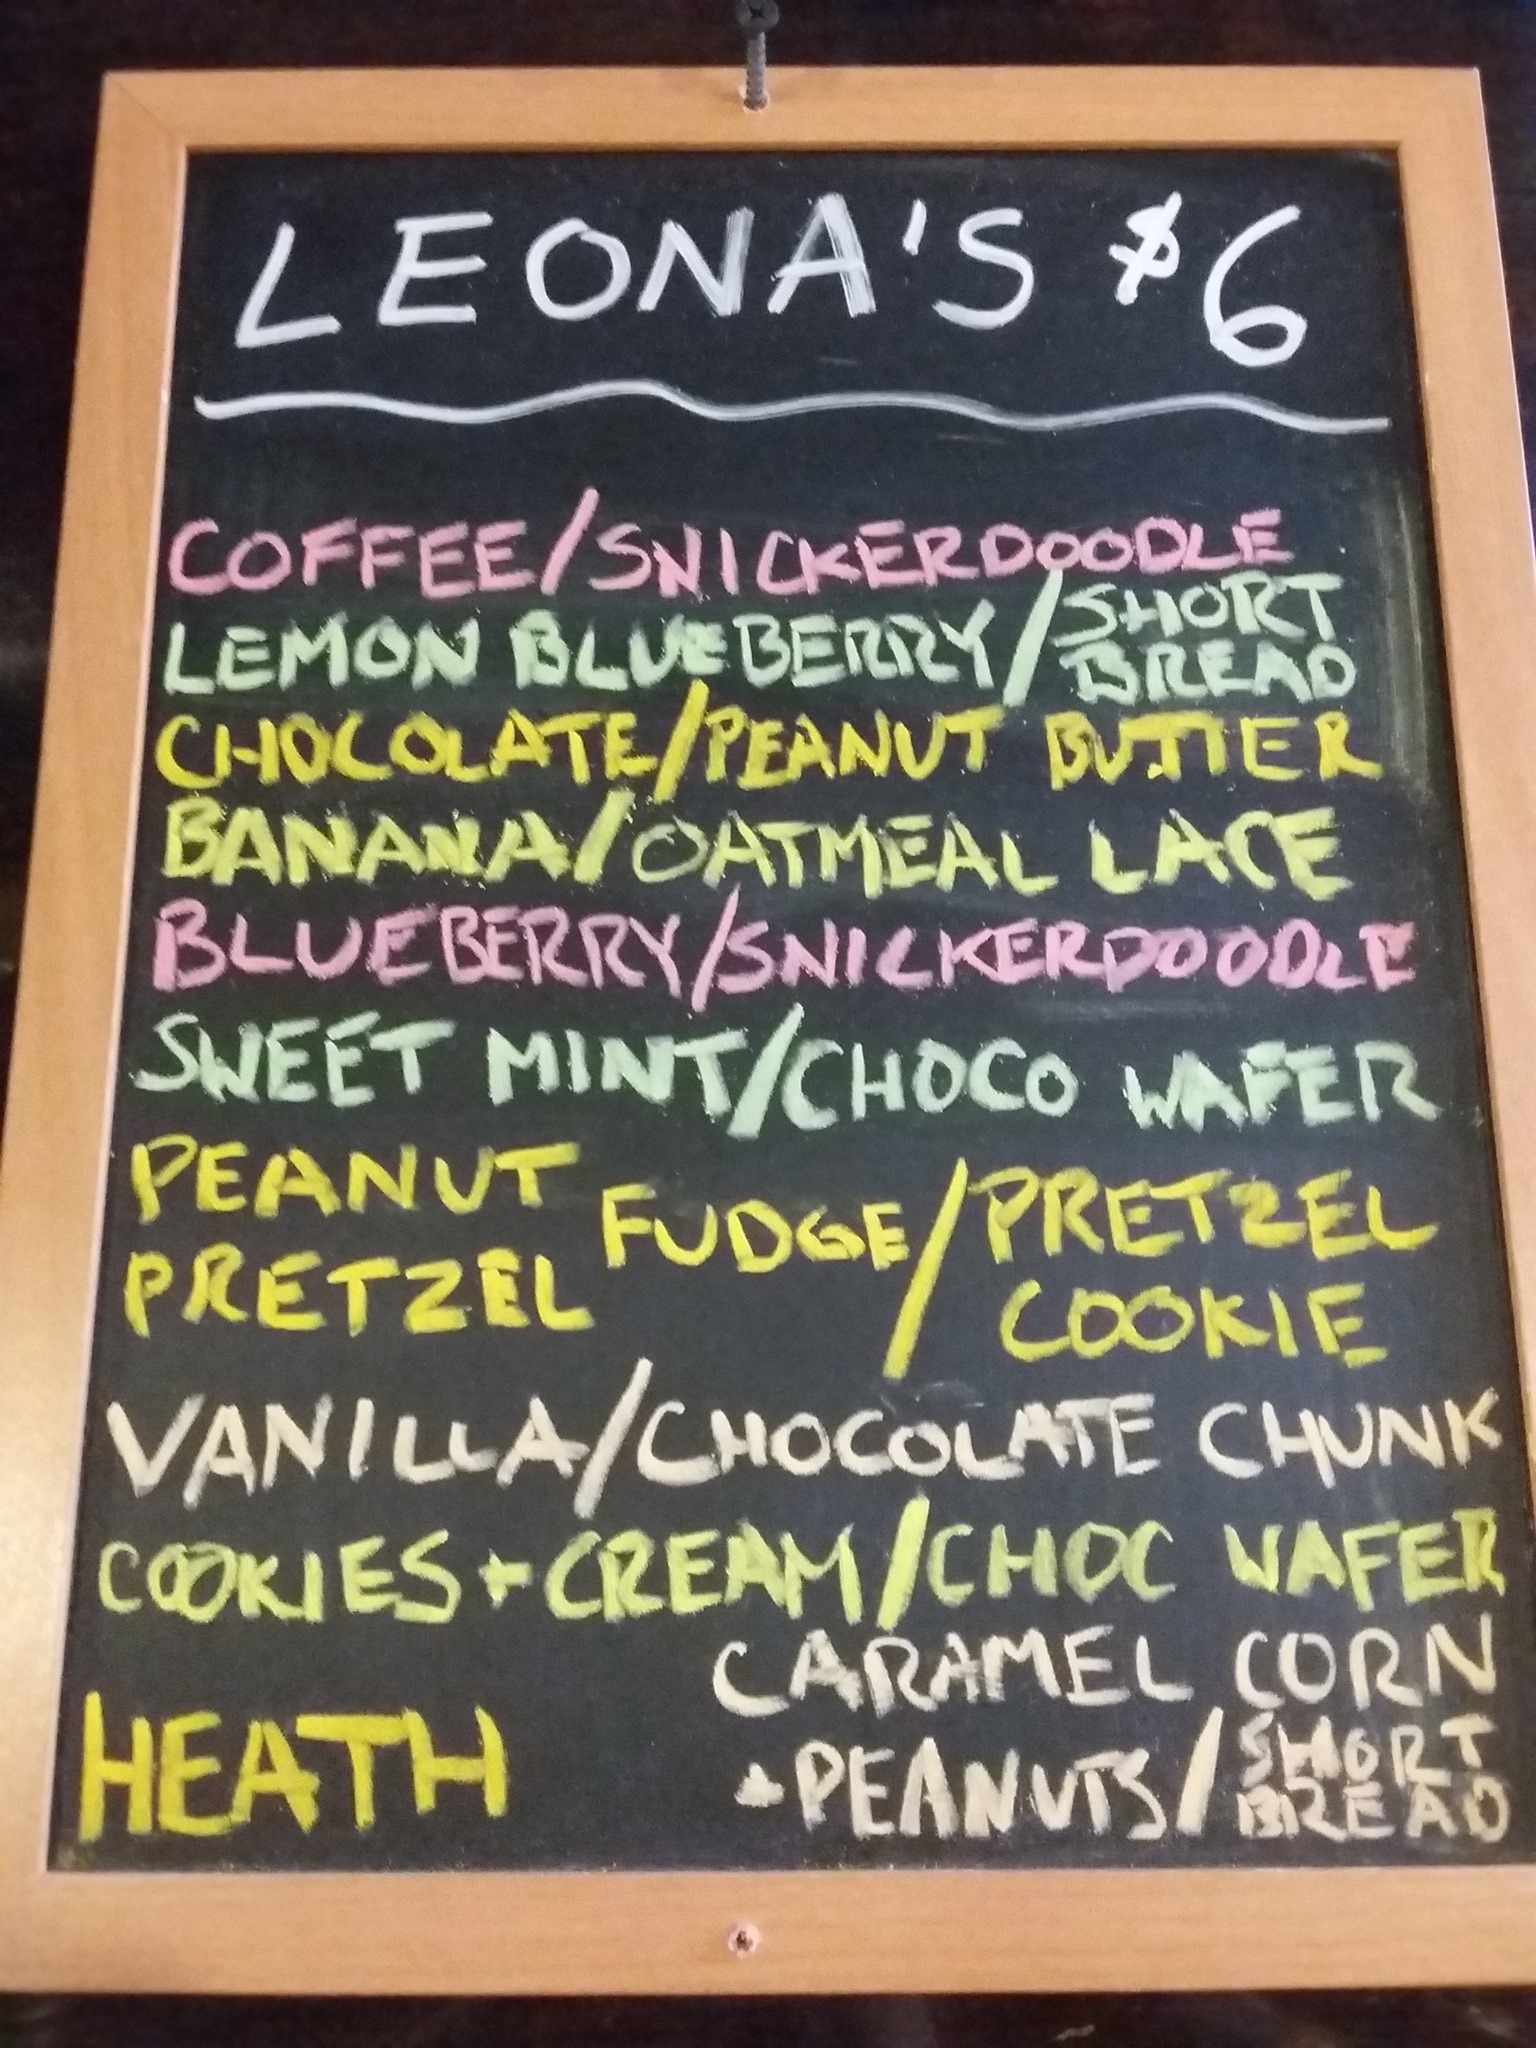 LEONA'S $6
COFFEE/SNICKERDOODLE
LEMON BLUEBERRY/SHORT
BREAD
CHOCOLATE/PEANUT BUTTER
BANANA/OATMEAL LACE
BLUEBERRY/SNICKERDOODLE
SWEET MINT/CHOCO WAFER
PEANUT
PRETZEL
FUDGE/PRETZEL
COOKIE
VANILLA/CHOCOLATE CHUNK
COOKIES + CREAM/CHOC WAFER
HEATH
CARAMEL CORN
+ PEANUTS/SHORT
BREAD